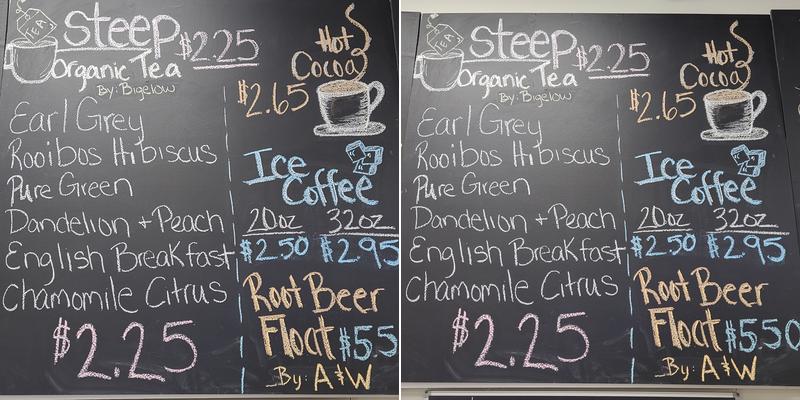 TEA
steep $2.25
Organic Tea
By: Bigelow
Earl Grey
Rooibos Hibiscus
Pure Green
Dandelion + Peach
English Breakfast
Chamomile Citrus
$2.25
Hot
Cocoa
$2.65
Ice
Coffee
20oz 32oz
$2.50 $2.95
Root Beer
Float $55
By: A&W
TEA
steep $2.25
Organic Tea
By: Bigelow
Earl Grey
Rooibos Hibiscus
Pure Green
Dandelion + Peach
English Breakfast
Chamomile Citrus
$2.25
Hot
Cocoa
$2.65
Ice
Coffee
20oz 32oz
$2.50 $2.95
Root Beer
Float $550
By: A&W